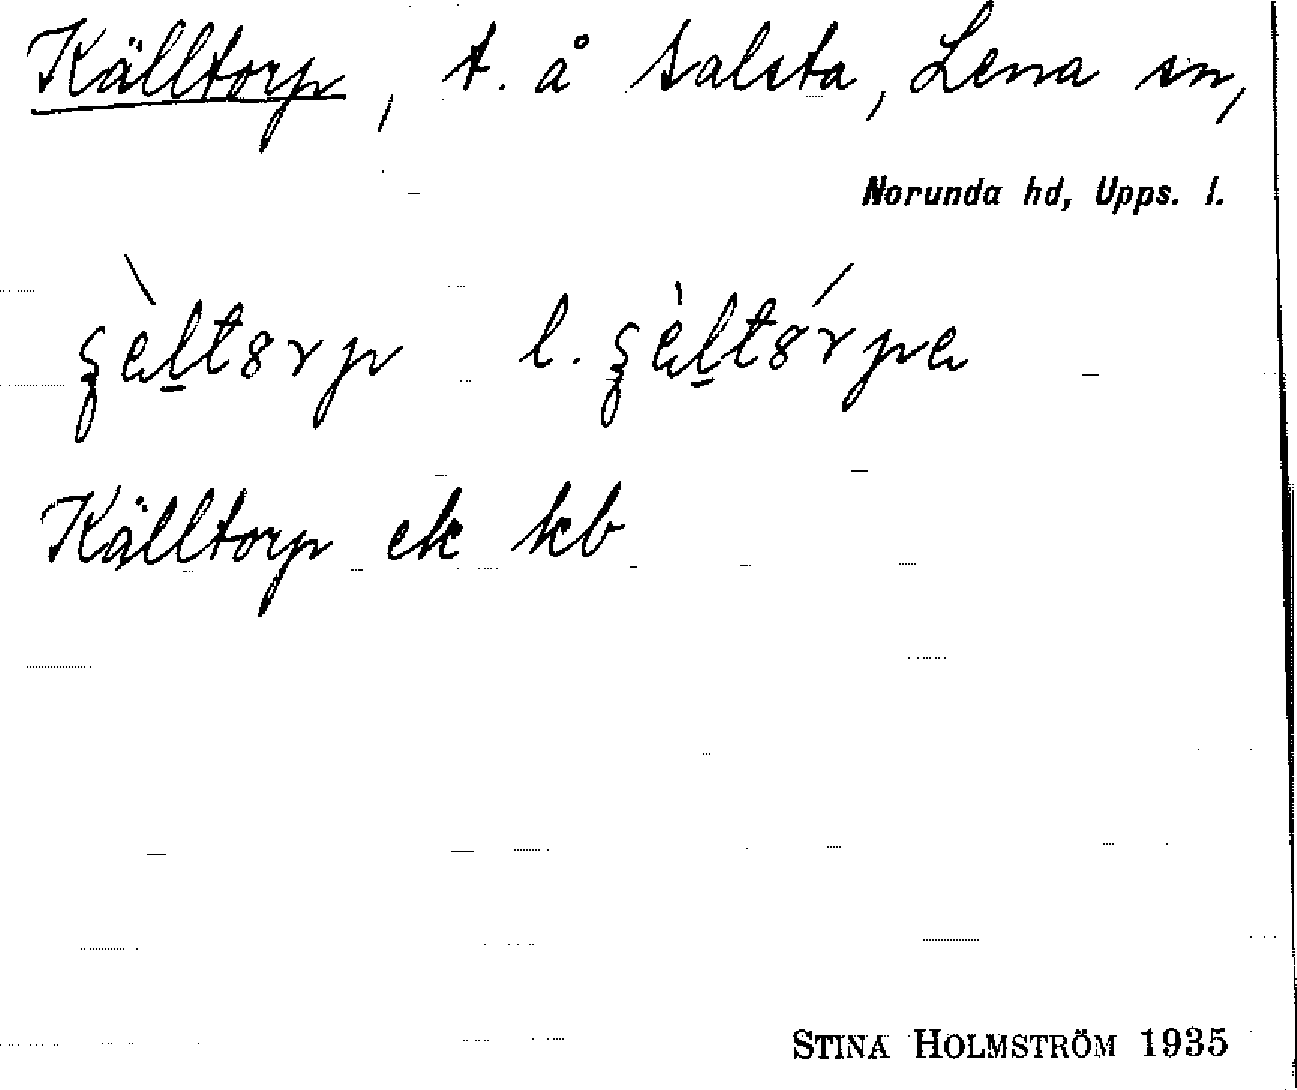 Källtorp, t. å Salsta, Lena sn,
Norunda hd, Upps. l.
l.
Källtorp ek kb
STINA HOLMSTRÖM 1935